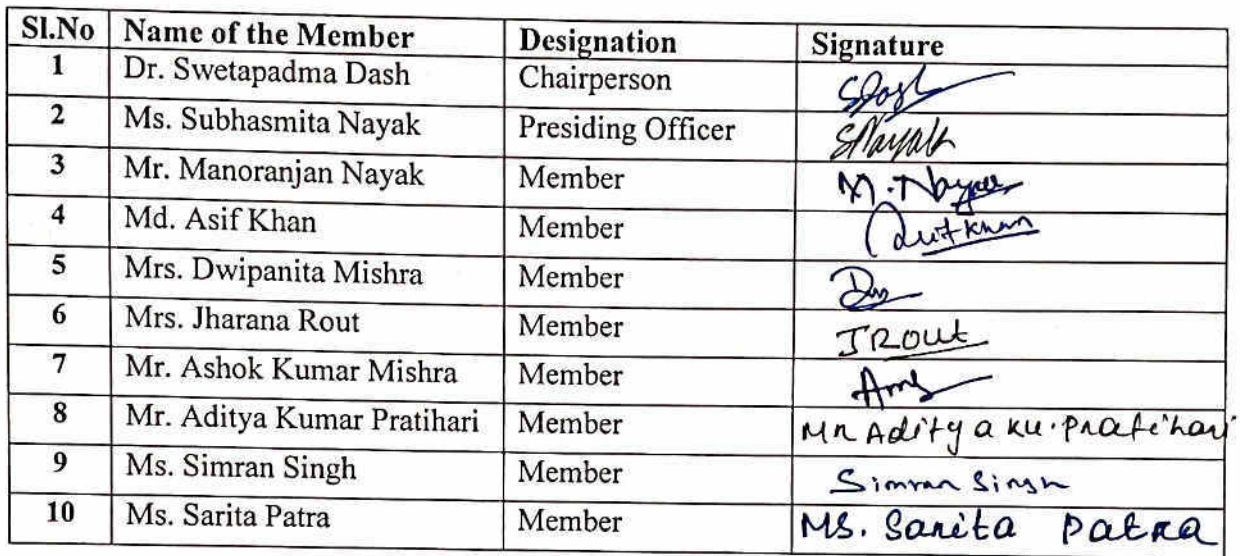 Sl.No Name of the Member Designation Signature
1 Dr. Swetapadma Dash Chairperson SDash
2 Ms. Subhasmita Nayak Presiding Officer SNayak
3 Mr. Manoranjan Nayak Member M. Nayak
4 Md. Asif Khan Member Asif Khan
5 Mrs. Dwipanita Mishra Member
6 Mrs. Jharana Rout Member JRout
7 Mr. Ashok Kumar Mishra Member
8 Mr. Aditya Kumar Pratihari Member Mr Aditya Ku. Pratihari
9 Ms. Simran Singh Member Simran Singh
10 Ms. Sarita Patra Member MS. Sarita Patra